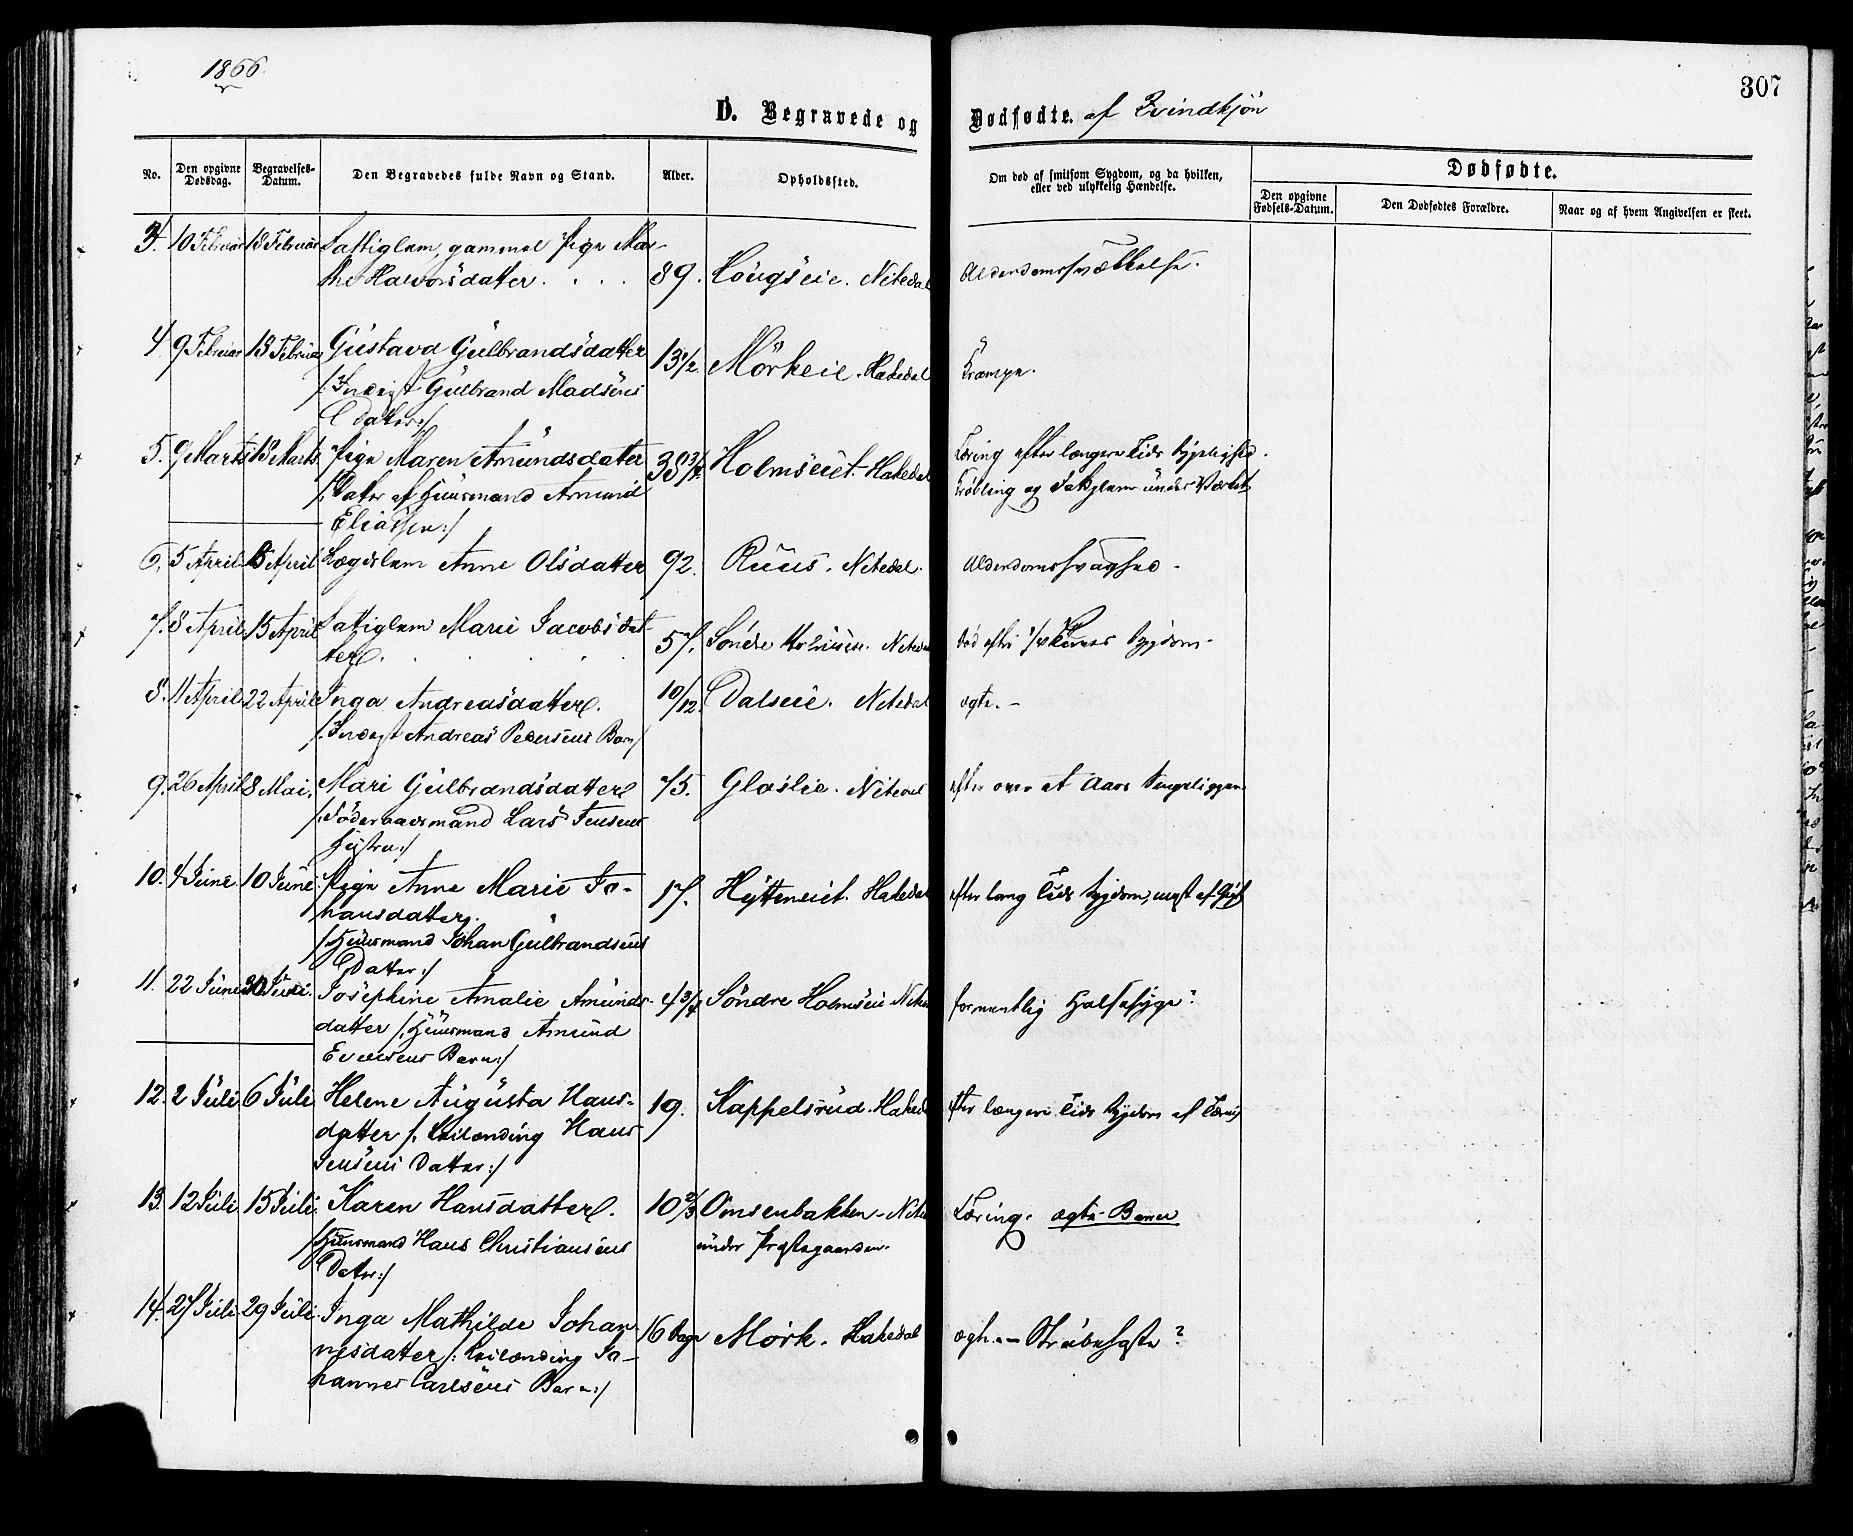 1866
307
D. Begravede og Dødfødte. af Qvindkjön
No.
Den opgivne Dødsdag.
Begravelses-Datum.
Den Begravedes fulde Navn og Stand.
Alder.
Opholdssted.
Om død af smitsom Sygdom, og da hvilken, eller ved ulykkelig Hændelse.
Dødfødte.
Den opgivne Fødsels-Datum.
Den Dødfødtes Forældre.
Naar og af hvem Angivelsen er skeet.
3. 10 Februar 18 Februar Fattiglem, gammel Pige Mar-
the Halvorsdatter. . . . 89. Hougseie. Nitedal Alderdomssvækkelse.
4. 9 Februar 18 Februar Gustava Gulbrandsdatter 13 1/2. Mörkeie. Hakedal Krampe.
/: Inderst Gulbrand Madsens
Datter :/
5. 9 Marts 18 Marts Pige Maren Amundsdatter Holmseiet. Hakedal Tæring efter længere Tids Sygelighed.
/: Datter af Huusmand Amund Krøbling og
Eliassen :/
6. 5 April 15 April Lægdslem Anne Olsdatter 92. Ruus. Nitedal. Alderdomssvaghed.
7. 8 April 15 April Fattiglem Marie Jacobsdat-
ter. 57. Søndre Nitedal Død efter Sygdom.
8. 11 April 22 April Inga Andreasdatter. 10/12. Dalseie. Nitedal ogte.
/: Inderst Andreas Pedersens Barn :/
9. 26 April 8 Mai. Mari Gulbrandsdatter 75. Glaslie. Nitedal efter over et Aars Sengeliggen
/: Föderaadsmand Lars Jensens
Hustru :/
10. 4 Juni 10 Juni Pige Anne Marie Jo-
hansdatter. 17. Hytteneiet. Hakedal efter lang Tids Sygdom, mest af Gigt
/: Huusmand Johan Gulbrandsens
Datter :/
11. 22 Juni 30 Juni. Josephine Amalie Amunds- 4 3/4 Söndre Holmseie formentlig Halssyge?
datter /: Huusmand Amund
Eversens Barn :/
12. 2 Juli 6 Juli Helene Augusta Hans- 19. Kappelsrud. Hakedal efter længere Tids Sygdom af Tæring
datter /: Leilænding Hans
Jensens Datter :/
13. 12 Juli 15 Juli. Karen Hansdatter. 10 2/3 Omsenbakken Tæring.
/: Huusmand Hans Christiansens under Præstegaarden.
Datter :/
14. 27 Juli 29 Juli Inga Mathilde Johan- 16 Dage Mörk. Hakedal Strubehoste?
nesdatter /: Leilænding Jo-
hannes Carlsens Barn :/